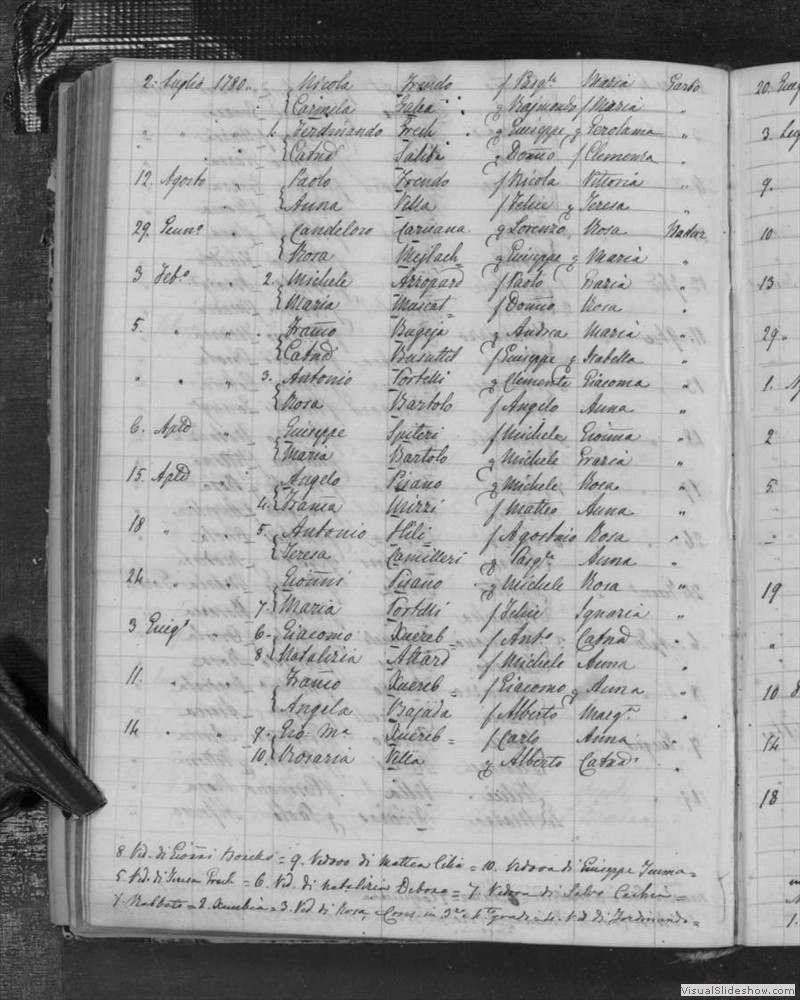 2. Luglio 1780. Nicola Frendo f Pasq.le Maria Garbo
Carmela Galea g Rajmondo f Maria "
" " " 1. Ferdinando Frech g Giuseppe g Gerolama "
Catnd Saliba g Dom̄co f Clemenza "
12. Agosto " Paolo Frendo f Nicola Vittoria "
Anna Vella f Felice g Teresa "
29. Genn.o " Candeloro Caruana g Lorenzo Rosa Nadur
Rosa Mejlach g Giuseppe g Maria "
3 Feb.o " 2 Michele Azzopard f Paolo Grazia "
Maria Muscat f Dom̄co Rosa "
5. " " Fran̄co Bugeja g Andrea Maria "
Catnd Busuttil f Giuseppe g Isabella "
" " " 3. Antonio Portelli g Clemente Giacoma "
Rosa Bartolo f Angelo Anna "
6. " Giuseppe Spiteri f Michele Gioan̄na "
Maria Bartolo g Michele Grazia "
15. " Angelo Pisano g Michele Rosa "
4. Fran̄ca Mizzi f Matteo Anna "
18 " 5. Antonio Hili f Agostino Rosa "
Teresa Camilleri g Pasq.le Anna "
24 " Gioan̄ni Pisano g Michele Rosa "
7. Maria Portelli f Felice Ignazia "
3 Giug.o " 6. Giacomo Xuereb f Ant.o Catnd "
8. Natalizia Attard f Michele Anna "
11. " Fran̄co Xuereb f Giacomo g Anna "
Angela Bajada f Alberto Marg.ta "
14 " " 9. Gio M.a Xuereb f Carlo Anna "
10. Rosaria Vella g Alberto Catnd "
8 Ved. di Gioan̄ni = 9. Vedovo di Mattea = 10. Vedova di Giuseppe =
5 Ved. di Teresa = 6. Ved. di Natalizia Debono = 7. Vedova di Salvo =
1. Rabbato = 2. = 3. Ved di Rosa = Cons. in 3.o e 4.to grado = 4. Ved di Ferdinando =
20.
3.
9.
10
13
29
1.
2
5.
19
10
14
18
VisualSlideshow.com